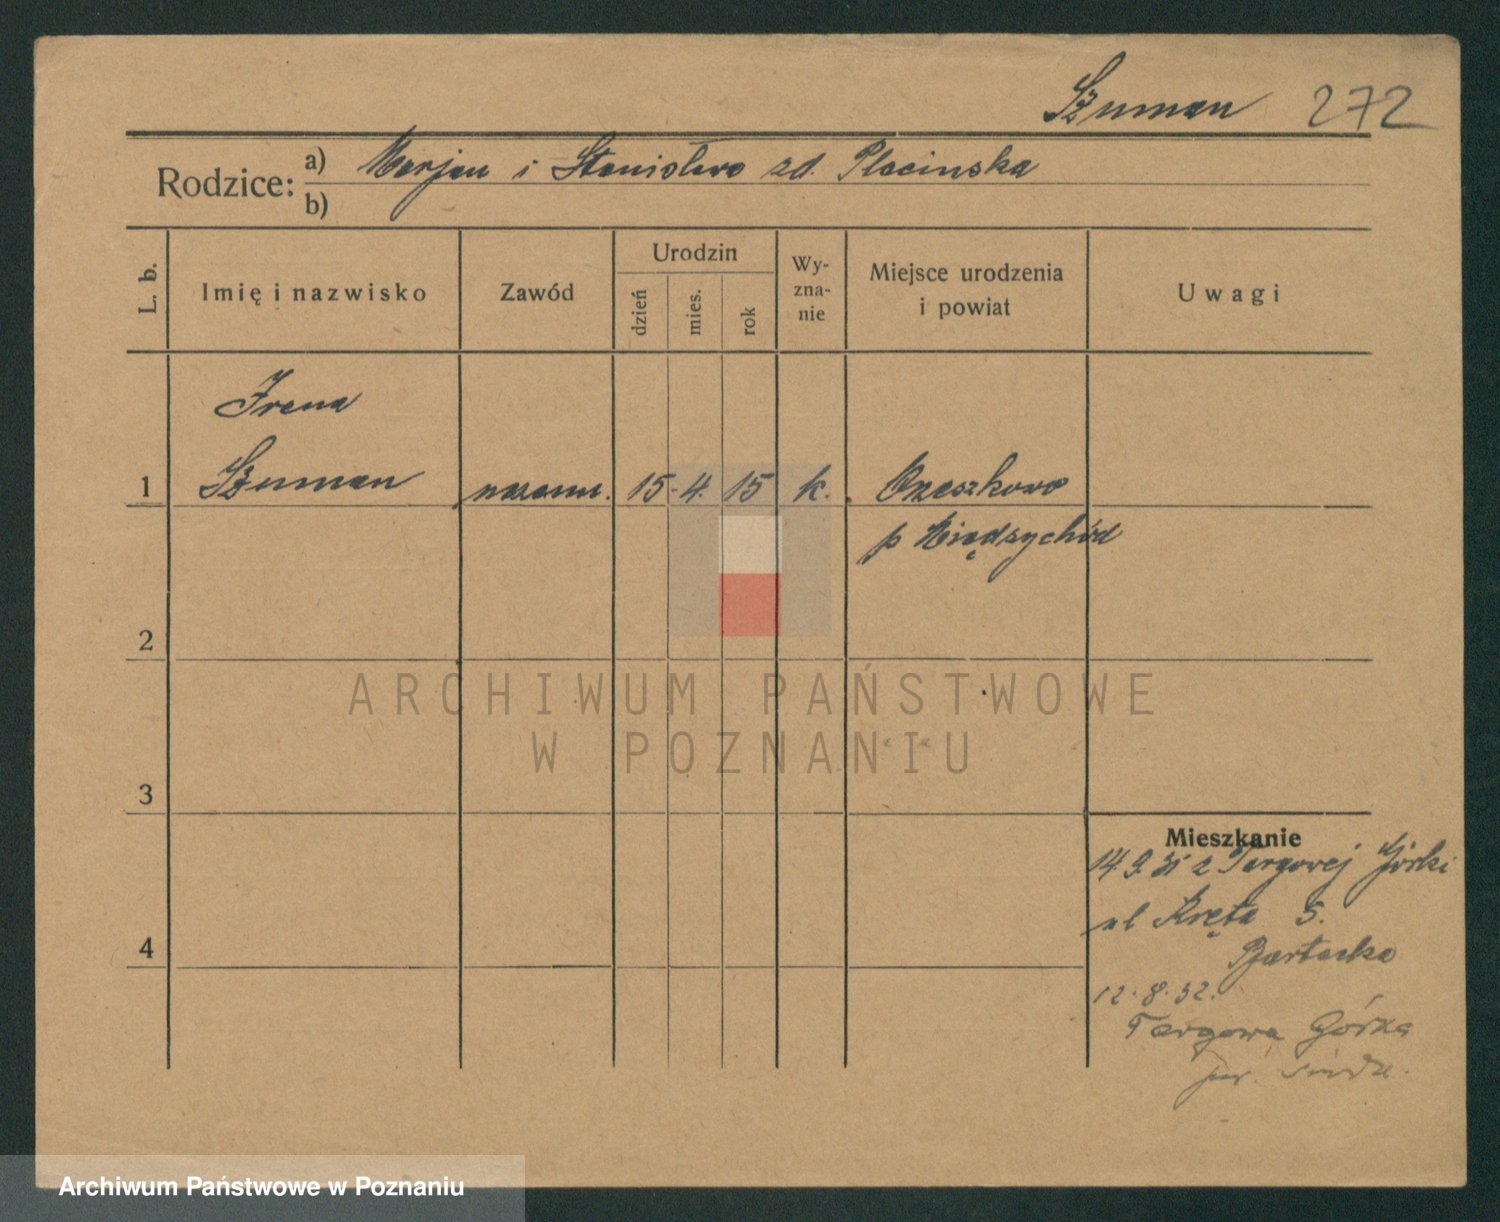 Szuman 272
Rodzice: a) Marjan i Stanisława zd. Placinska
b)
L. b. Imię i nazwisko Zawód Urodzin dzień mies. rok Wy-zna-nie Miejsce urodzenia i powiat Uwagi
Irena
1 Szuman 15. 4. 15 k. Orzeszkowo
p Międzychód
2
ARCHIWUM PAŃSTWOWE
W POZNANIU
3
Mieszkanie
14.9.31 z Targowej Górki
ul Kręta 5.
12.8.32.
Targowa Górka
4
Archiwum Państwowe w Poznaniu